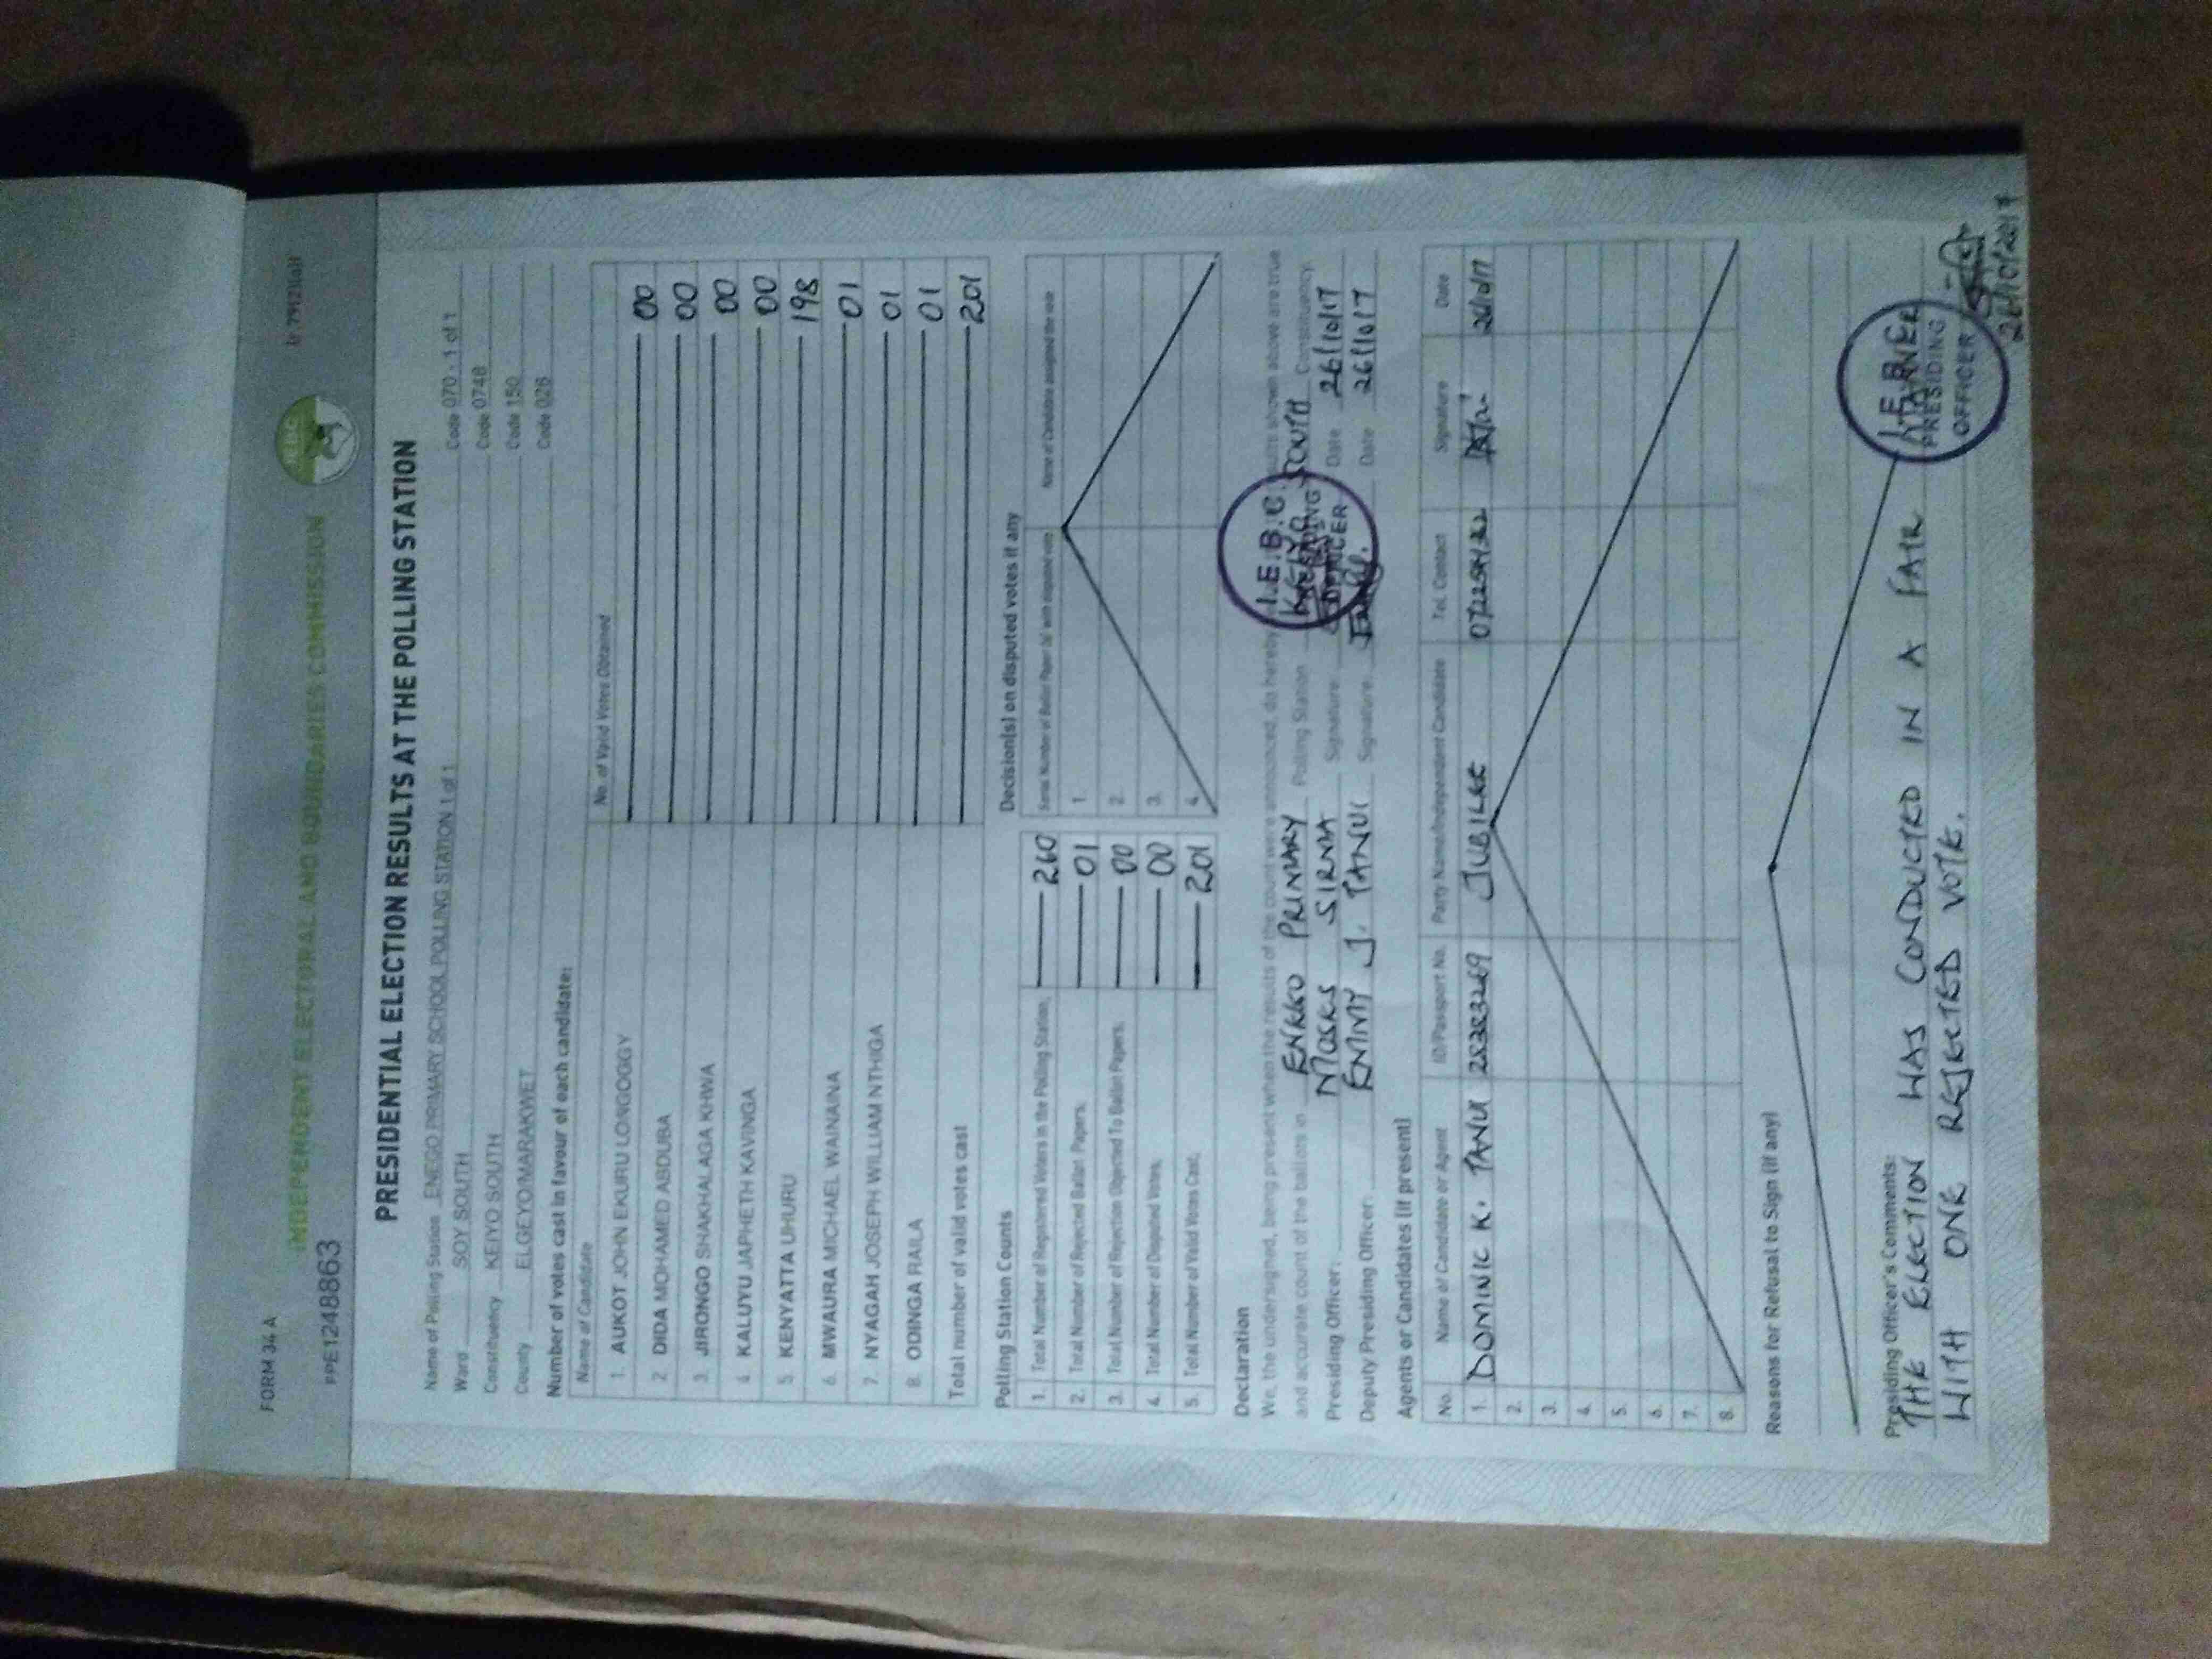 FORM 34 A
PPE1248863
INDEPENDENT ELECTORAL AND BOUNDARIES COMMISSION
PRESIDENTIAL ELECTION RESULTS AT THE POLLING STATION
Name of Polling Station ENEGO PRIMARY SCHOOL POLLING STATION 1 of 1 Code 070 - 1 of 1
Ward SOY SOUTH Code 0748
Constituency KEIYO SOUTH Code 150
County ELGEYO/MARAKWET Code 028
Number of votes cast in favour of each candidate:
Name of Candidate No. of Valid Votes Obtained
1. AUKOT JOHN EKURU LONGOGGY 00
2 DIDA MOHAMED ABDUBA 00
3. JIRONGO SHAKHALAGA KHWA 00
4. KALUYU JAPHETH KAVINGA 00
5. KENYATTA UHURU 198
6. MWAURA MICHAEL WAINAINA 01
7. NYAGAH JOSEPH WILLIAM NTHIGA 01
8. ODINGA RAILA 01
Total number of valid votes cast 201
Polling Station Counts
1. Total Number of Registered Voters in the Polling Station; 260
2. Total Number of Rejected Ballot Papers; 01
3. Total Number of Rejection Objected To Ballot Papers; 00
4. Total Number of Disputed Votes; 00
5. Total Number of Valid Votes Cast; 201
Decision(s) on disputed votes if any
Serial Number of Ballot Paper (s) with disputed vote Name of Candidate assigned the vote
1.
2.
3.
4.
Declaration
We, the undersigned, being present when the results of the count were announced, do hereby shown above are true
and accurate count of the ballots in ENEGO PRIMARY Polling Station KEIYO SOUTH Constituency.
Presiding Officer: MOSES SIRMA Signature: Date 26/10/17
Deputy Presiding Officer: EMMY J. TANUI Signature: Date 26/10/17
I.E.B.C.
PRESIDING
OFFICER
Agents or Candidates (if present)
No. Name of Candidate or Agent ID/Passport No. Party Name/Independent Candidate Tel. Contact Signature Date
1. DOMINIC K. TANUI 28383269 JUBILEE 26/10/17
2.
3.
4.
5.
6.
7.
8.
Reasons for Refusal to Sign (if any)
Presiding Officer's Comments:
THE ELECTION WAS CONDUCTED IN A FAIR MANNER
WITH ONE REJECTED VOTE.
I.E.B.C
PRESIDING
OFFICER
26/10/2017